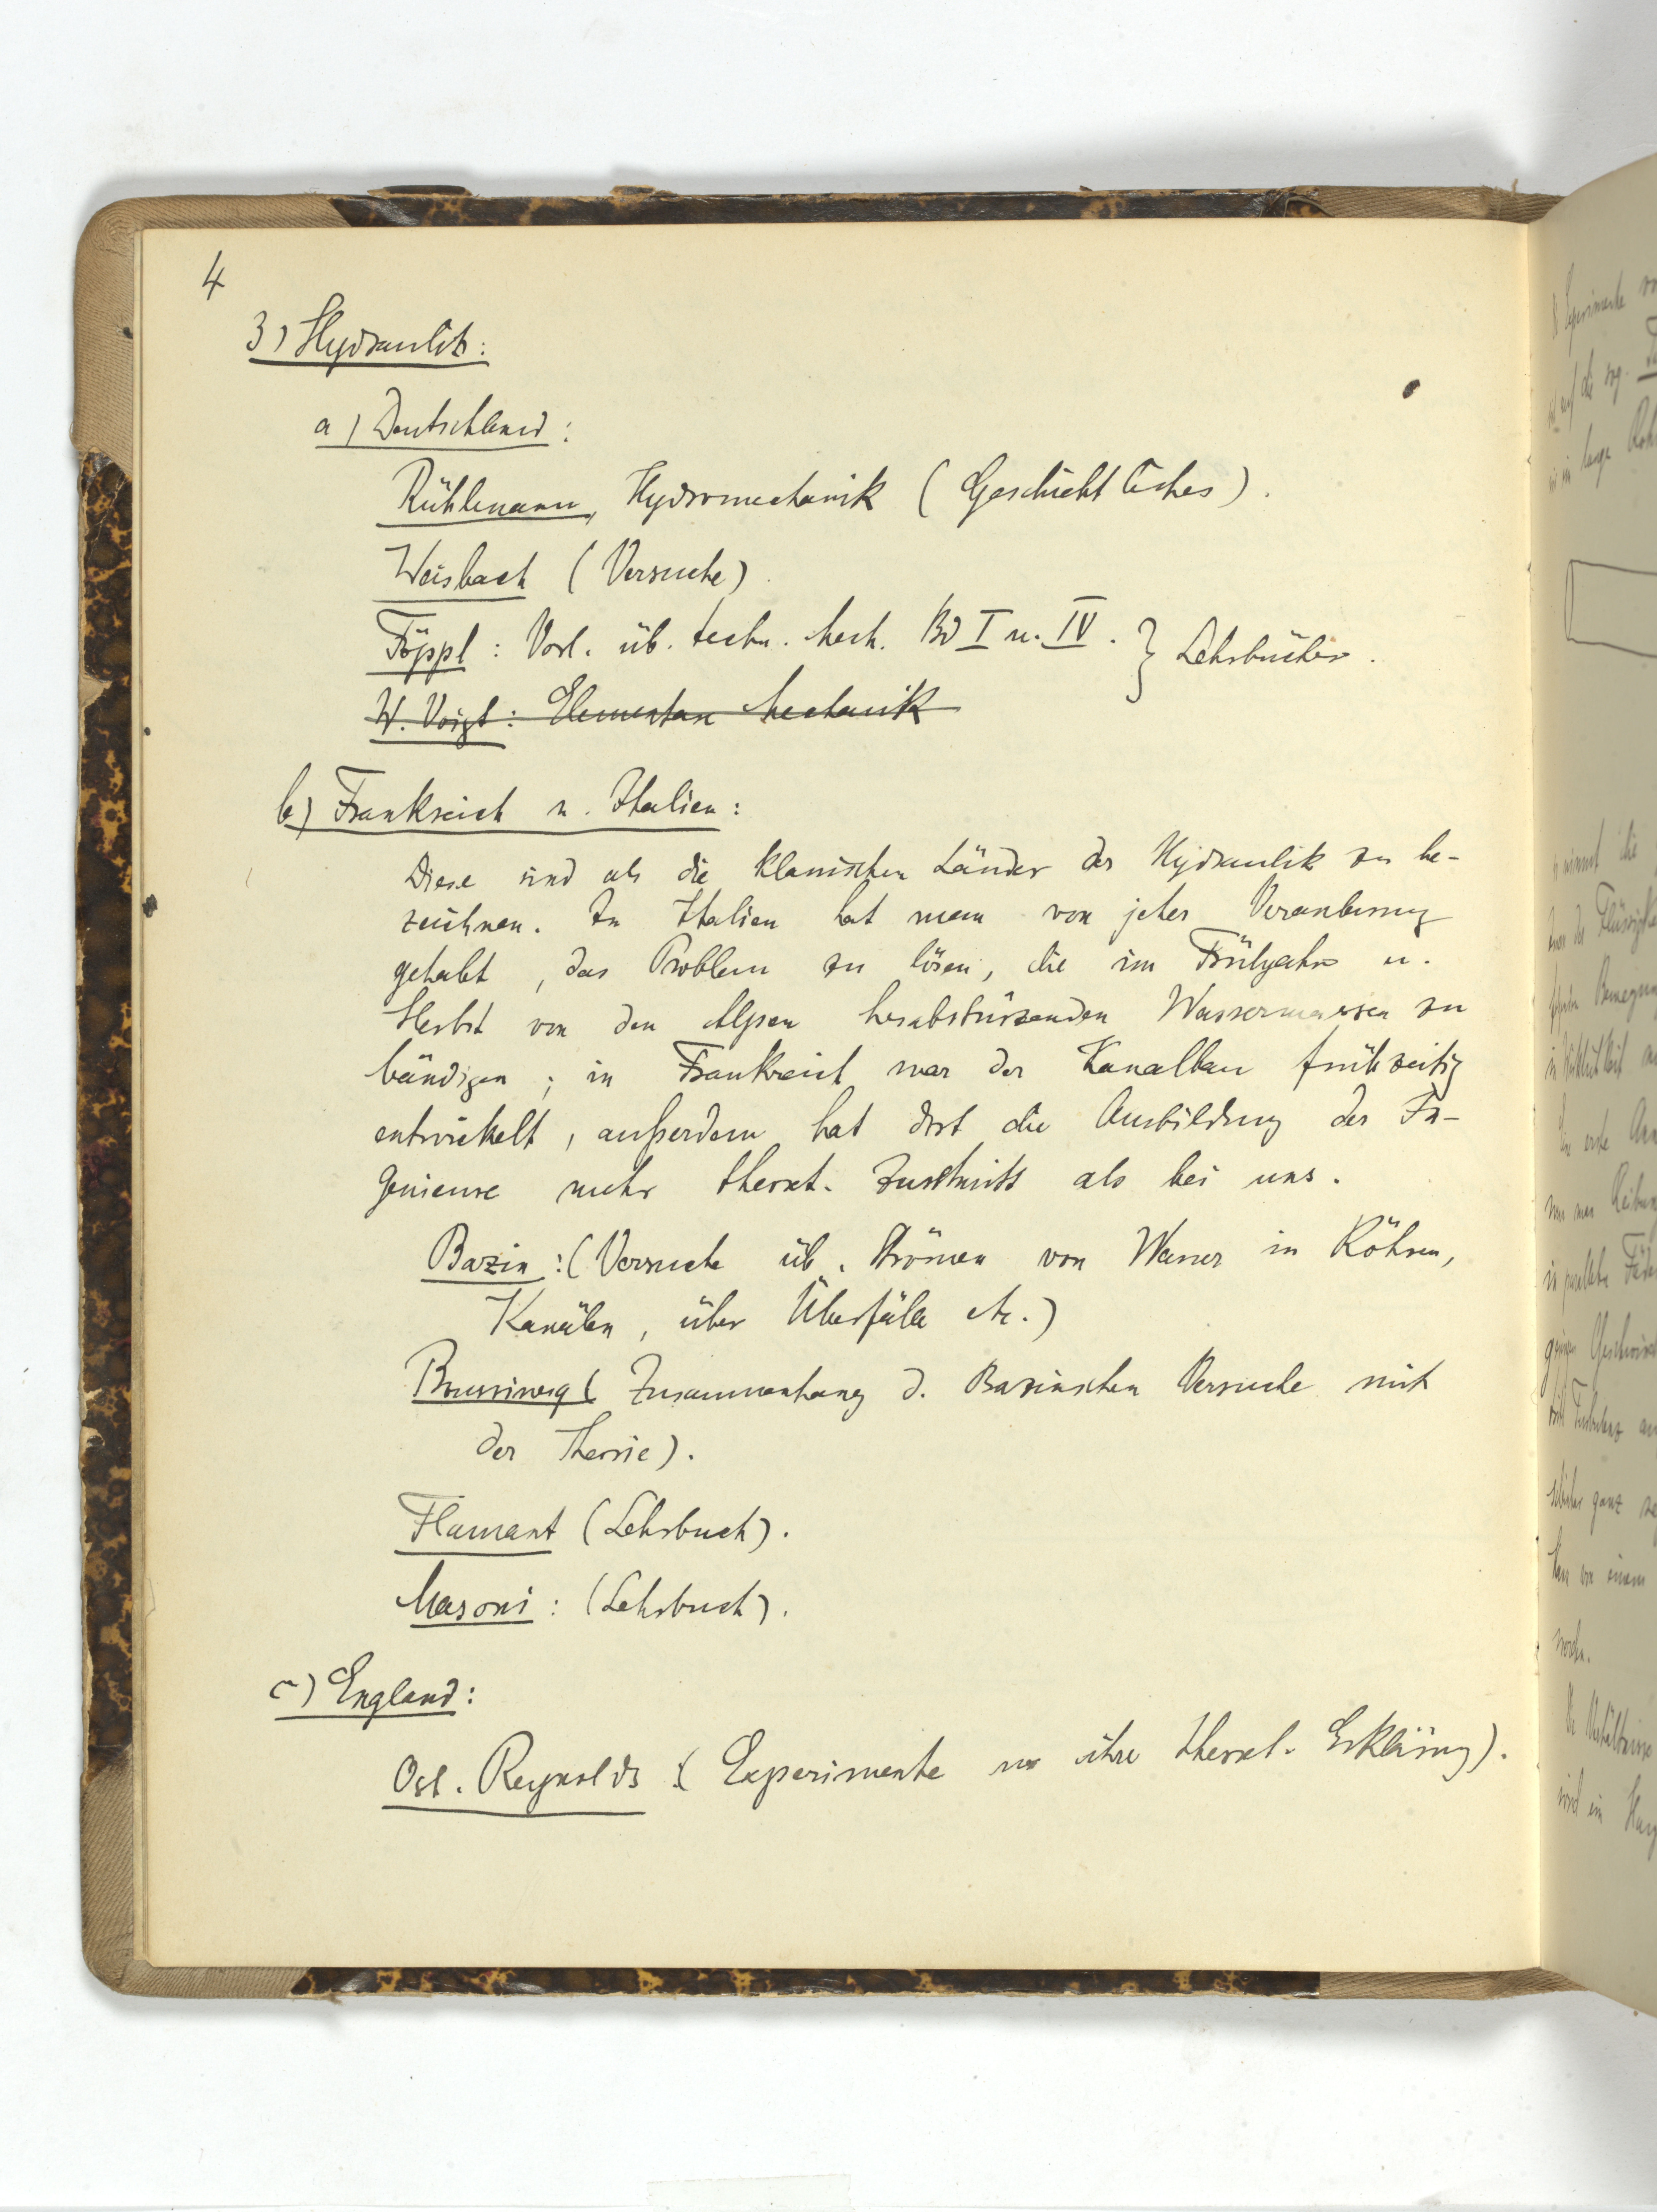 4
3) Hydraulik:
a) Deutschland:
Rühlmann, Hydromechanik (Geschichtliches).
Weisbach (Versuche).
Föppl: Vorl. üb. techn. Mech. Bd I u. IV. } Lehrbücher.
W. Voigt: Elementare Mechanik
b) Frankreich u. Italien:
Diese sind als die klassischen Länder der Hydraulik zu be-
zeichnen. In Italien hat man von jeher Veranlassung
gehabt, das Problem zu lösen, die im Frühjahr u.
Herbst von den Alpen herabstürzenden Wassermassen zu
bändigen; in Frankreich war der Kanalbau frühzeitig
entwickelt, außerdem hat dort die Ausbildung der In-
genieure mehr theoret. Zuschnitt als bei uns.
Bazin: (Versuche üb. Strömen von Wasser in Röhren,
Kanälen, über Überfälle etc.)
Zusammenhang d. Bazinschen Versuche mit
der Theorie).
Flamant (Lehrbuch).
Masoni: (Lehrbuch).
c) England:
Osb. Reynolds (Experimente u. ihre theoret. Erklärung).